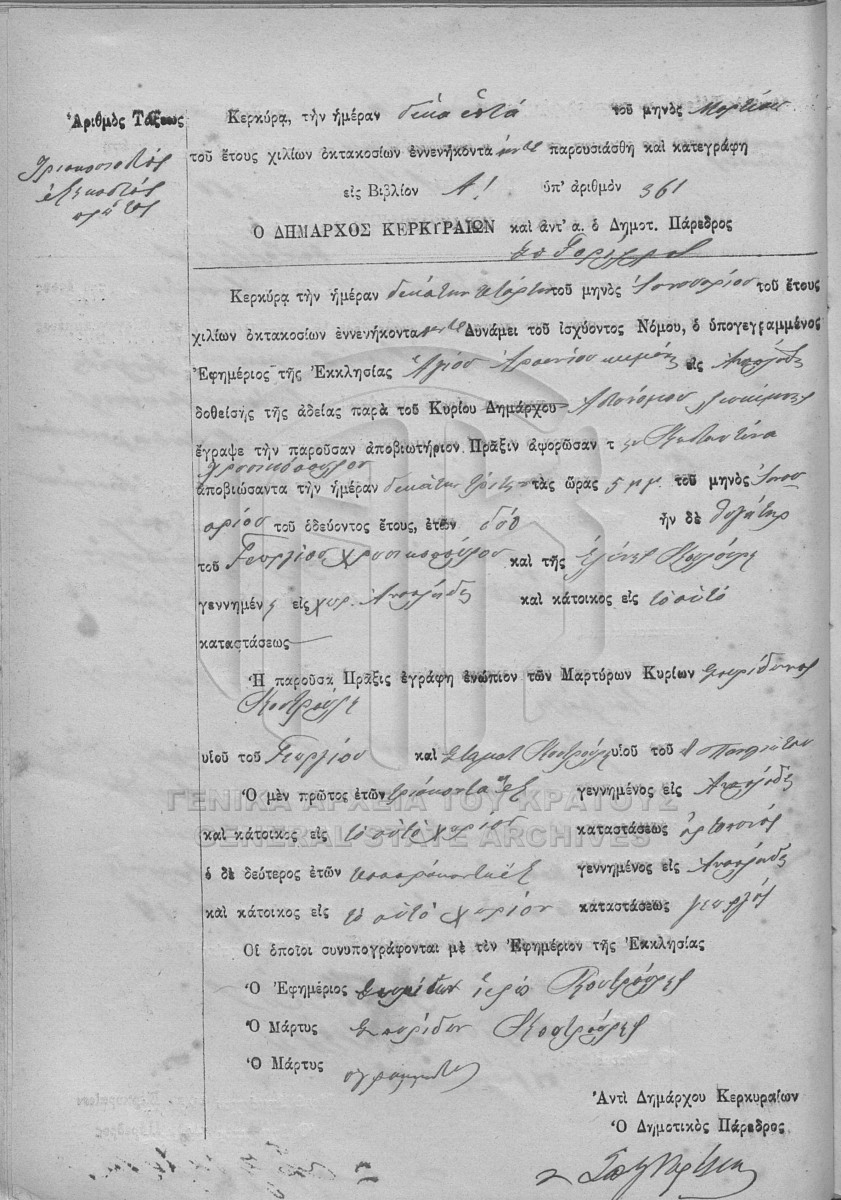 Ἀριθμὸς Τάξεως
Τριακοσιοστὸς
ἑξηκοστὸς
πρῶτος
Κερκύρα, τὴν ἡμέραν δέκα ἑπτά τοῦ μηνὸς Μαρτίου
τοῦ ἔτους χιλίων ὀκτακοσίων ἐννενήκοντα πέντε παρουσιάσθη καὶ κατεγράφη
εἰς Βιβλίον Α! ὑπ' ἀριθμὸν 361
Ο ΔΗΜΑΡΧΟΣ ΚΕΡΚΥΡΑΙΩΝ καὶ ἀντ' α. ὁ Δημοτ. Πάρεδρος
Κερκύρα τὴν ἡμέραν δεκάτην τετάρτην τοῦ μηνὸς Ἰανουαρίου τοῦ ἔτους
χιλίων ὀκτακοσίων ἐννενήκοντα πέντε Δυνάμει τοῦ ἰσχύοντος Νόμου, ὁ ὑπογεγραμμένος
Ἐφημέριος τῆς Ἐκκλησίας Ἁγίου Ἀρσενίου εἰς
δοθείσης τῆς ἀδείας παρὰ τοῦ Κυρίου Δημάρχου Ἀστυνόμου
ἔγραψε τὴν παροῦσαν ἀποβιωτήριον Πρᾶξιν ἀφορῶσαν τ
Χρυσικόπουλου
ἀποβιώσαντα τὴν ἡμέραν δεκάτην τρίτην τὰς ὥρας 5 μ μ. τοῦ μηνὸς Ἰανου
αρίου τοῦ ὁδεύοντος ἔτους, ἐτῶν δύο ἦν δὲ θυγάτηρ
τοῦ Γεωργίου Χρυσικοπούλου καὶ τῆς Ἑλένης
γεννημέν η εἰς χωρ. καὶ κάτοικος εἰς τὸ αὐτὸ
καταστάσεως
Ἡ παροῦσα Πρᾶξις ἐγράφη ἐνώπιον τῶν Μαρτύρων Κυρίων Σπυρίδωνος
Κουτρούλη
υἱοῦ τοῦ Γεωργίου καὶ Σταματ Κουτρούλη υἱοῦ τοῦ
Ὁ μὲν πρῶτος ἐτῶν τριάκοντα ἕξ γεννημένος εἰς
ΓΕΝΙΚΑ ΑΡΧΕΙΑ ΤΟΥ ΚΡΑΤΟΥΣ
καὶ κάτοικος εἰς τὸ αὐτὸ χωρίον καταστάσεως
GENERAL STATE ARCHIVES
ὁ δὲ δεύτερος ἐτῶν τεσσαρακονταὲξ γεννημένος εἰς
καὶ κάτοικος εἰς τὸ αὐτὸ χωρίον καταστάσεως γεωργός
Οἱ ὁποῖοι συνυπογράφονται μὲ τὸν Ἐφημέριον τῆς Ἐκκλησίας
Ὁ Ἐφημέριος Σπυρίδων ἱερεὺς Κουτρούλης
Ὁ Μάρτυς Σπυρίδων Κουτρούλης
Ὁ Μάρτυς ἀγράμματος
Ἀντὶ Δημάρχου Κερκυραίων
Ὁ Δημοτικὸς Πάρεδρος